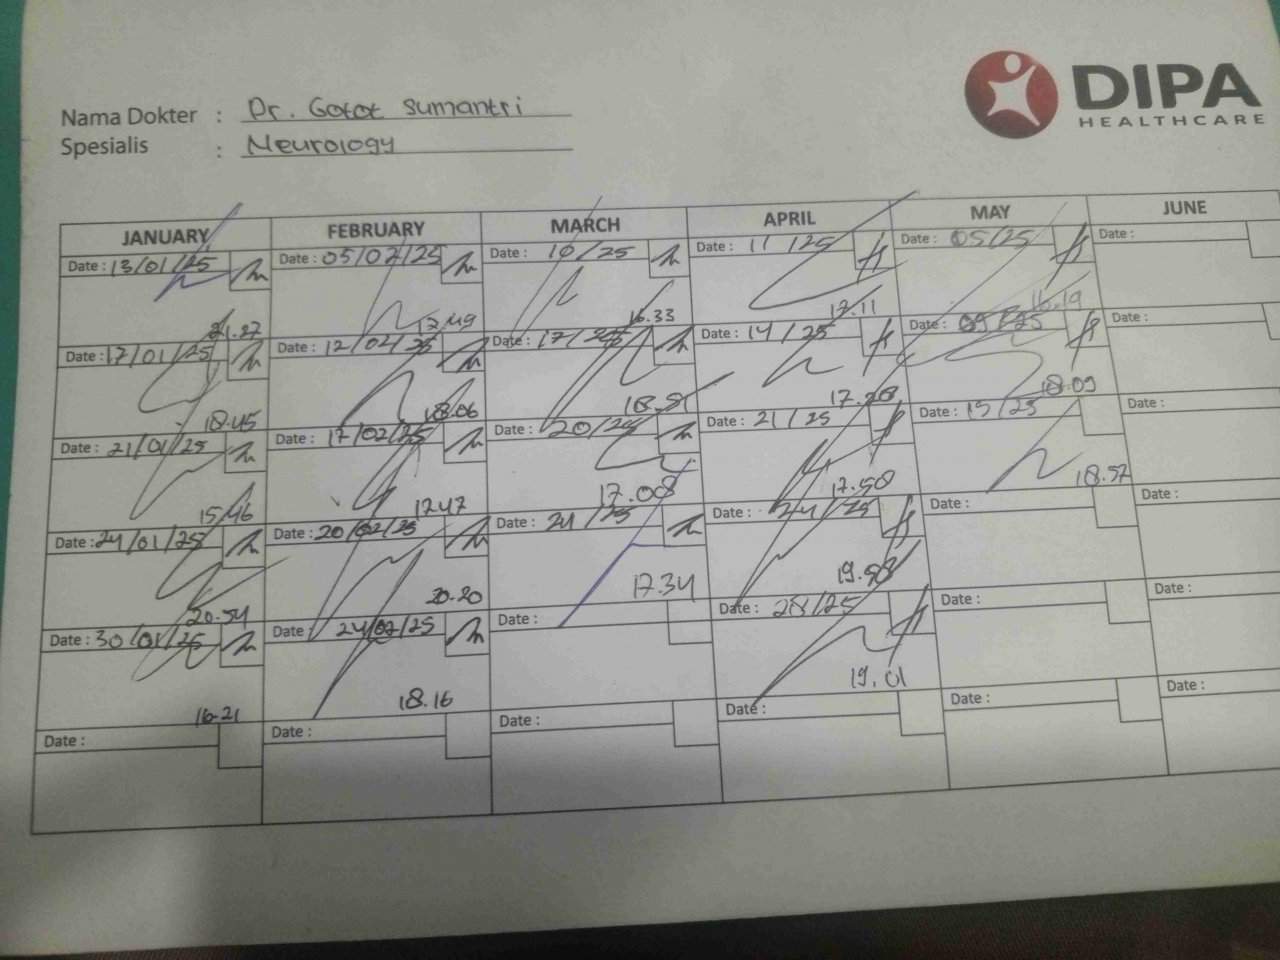 DIPA
HEALTHCARE
Nama Dokter : Dr. Gatot Sumantri
Spesialis : Neurology
JANUARY FEBRUARY MARCH APRIL MAY JUNE
Date : 13/01/25 Date : 05/02/25 Date : 10/25 Date : 11/25 Date : 05/25 Date :
21.27 17.49 16.33 17.11 16.19
Date : 17/01/25 Date : 12/02/25 Date : 17/25 Date : 14/25 Date : 09/25 Date :
18.45 18.06 18.51 17.28 18.09
Date : 21/01/25 Date : 17/02/25 Date : 20/25 Date : 21/25 Date : 15/25 Date :
15.46 17.47 17.08 17.58 18.57
Date : 24/01/25 Date : 20/02/25 Date : 24/25 Date : 24/25 Date : Date :
20.54 20.20 17.34 19.58
Date : 30/01/25 Date : 24/02/25 Date : Date : 28/25 Date : Date :
16.21 18.16 19.01
Date : Date : Date : Date : Date : Date :